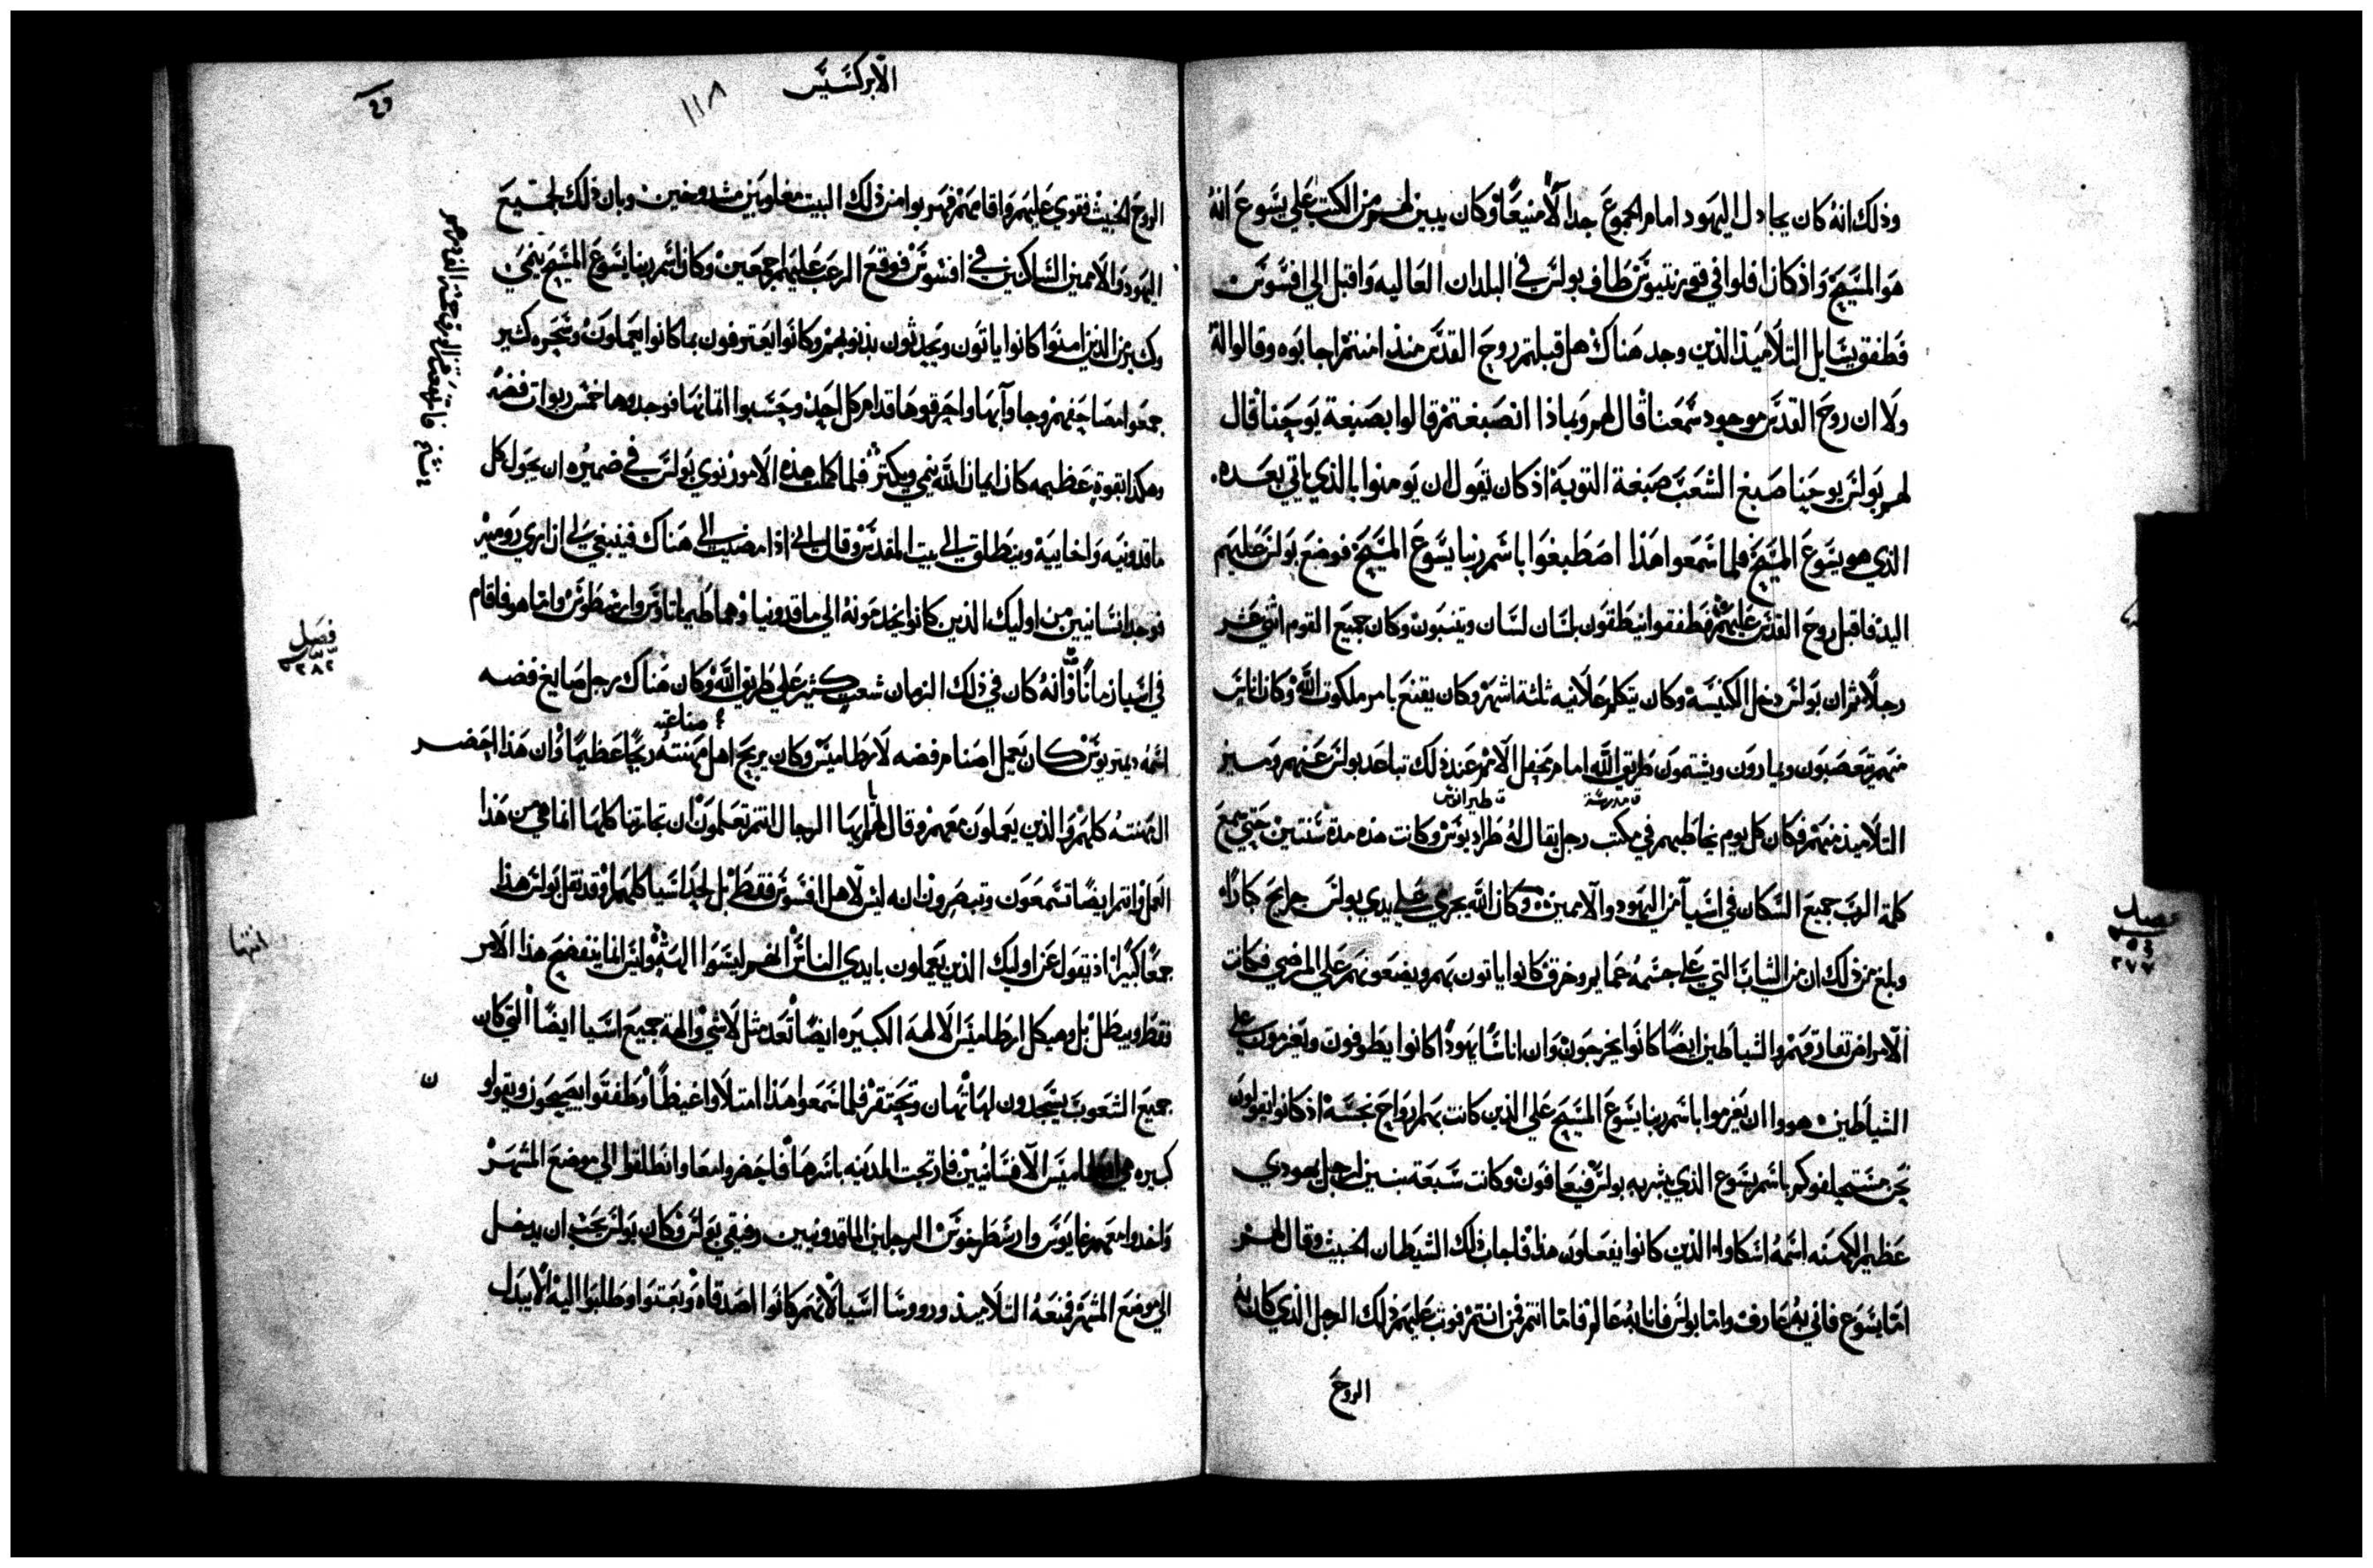 وذلك انه كان يجادل اليهود امام الجموع جدالًا منيعًا وكان يبين لهم من الكتب على يسوع انه
هو المسيح واذ كان افلوا في قورنتيوس طاف بولس في البلدان العاليه واقبل الي افسوس
فطفق يسايل التلاميذ الذين وجد هناك هل قبلتم روح القدس منذ امنتم اجابوه وقالوا له
ولا ان روح القدس موجود سمعنا قال لهم وبماذا انصبغتم قالوا بصبغة يوحنا قال
لهم بولس يوحنا صبغ الشعب صبغة التوبة اذ كان يقول ان يومنوا بالذي ياتي بعده
الذي هو يسوع المسيح فلما سمعوا هذا اصطبغوا باسم ربنا يسوع المسيح فوضع بولس عليهم
اليد فاقبل روح القدس عليهم فطفقوا ينطقون بلسان لسان ويتنبون وكان جميع القوم اثني عشر
رجلًا ثم ان بولس دخل الكنيسة وكان يتكلم علانيه ثلثة اشهر وكان يقنع بامر ملكوت الله وكان اناس
منهم يتعصبون ويمارون ويشتمون طريق الله امام محفل الامم عند ذلك تباعد بولس عنهم وميز
ق مدرسة ق طيرانوس
التلاميذ منهم فكان كل يوم يخاطبهم في مكتب رجل يقال له طراديوس وكانت هذه مدة سنتين حتي سمع
كلمة الرب جميع السكان في اسيا من اليهود والاميين وكان الله يجري علي يدي بولس جرايح كبارًا
فصل
وبلغ من ذلك ان من الثياب التي علي جسمه عمايم وخرق كانوا ياتون بهم ويضعونهم علي المرضي فكانت
الامراض تفارقهم والشياطين ايضًا كانوا يخرجون وان اناسًا يهودًا كانوا يطوفون ويعزمون علي
الشياطين هووا ان يعزموا باسم ربنا يسوع المسيح علي الذين كانت بهم ارواح نجسة اذ كانوا يقولون
نحن نستحلفوكم باسم يسوع الذي يبشر به بولس فيعافون وكانت سبعة بنين لرجل يهودي
عظيم الكهنه اسمه اسكاوا الذين كانوا يفعلون هذا فاجاب ذلك الشيطان الخبيث وقال لهم
اما يسوع فاني به عارف واما بولس فانا به عالم فاما انتم فمن انتم فوثب عليهم ذلك الرجل الذي كان به
الروح
الابركسيس
١١٨
الروح الخبيث فقوي عليهم واقامهم فهربوا من ذلك البيت مغلوبين مشدوخين وبان ذلك لجميع
اليهود والاميين الساكنين في افسوس فوقع الرعب عليهم اجمعين وكان اسم ربنا يسوع المسيح ينمي
وكثير من الذين امنوا كانوا ياتون ويحدثون بذنوبهم وكانوا يعترفون بما كانوا يعملون وسحره كثير
جمعوا مصاحفهم وجاوا بها واحرقوها قدام كل احد وحسبوا اثمانها فوجدوها خمس ربوات فضه
وهكذا بقوة عظيمه كان ايمان الله ينمي ويكثر فلما كملت هذه الامور نوي بولس في ضميره ان يجول كل
ماقدونيه واخاييه وينطلق الي بيت المقدس وقال اني اذا مضيت الي هناك فينبغي لي ان اري روميه
فوجه انسانيين من اوليك الذين كانوا يخدمونه الي ماقدونيا وهما طيماثاوس وارسطوس واما هو فاقام
فصل
٢٨٢
في اسيا زمانًا وانه كان في ذلك الزمان شعب كثير علي طريق الله وكان هناك رجل صايغ فضه
صناعته
اسمه ديمتريوس كان يعمل اصنام فضه لارطاميس وكان يربح اهل مهنته ربحًا عظيمًا وان هذا احضر
المهنته كلهم والذين يعملون معهم وقال لهم ايها الرجال انتم تعلمون ان تجارتنا كلها انما هي من هذا
العمل وانتم ايضًا تسمعون وتبصرون انه ليس لاهل افسوس فقط بل لجل اسيا كلهم وقد نقل بولس هذا
انتها
جمعًا كبيرًا اذ يقول عن اوليك الذين يعملون بايدي الناس انهم ليسوا الهه وليس انما يفتضح هذا الامر
فقط ويبطل بل وهيكل ارطاميس الالهه الكبيره ايضًا تعد مثل لا شي والهة جميع اسيا ايضًا التي كان
جميع الشعوب يسجدون لها تهان وتحتقر فلما سمعوا هذا امتلاوا غيظًا وطفقوا يصيحون ويقولو
ن
كبيره هي ارطاميس الافسانيين فارتجت المدينه باسرها فاحضروا معا وانطلقوا الي موضع المشهر
واخذوا معهم غايوس وارسطرخوس الرجلين الماقدونيين رفيقي بولس وكان بولس يحب ان يدخل
الي موضع المشهر فمنعه التلاميذ وروسا اسيا لانهم كانوا اصدقاه وبعثوا وطلبوا اليه الا يبذل